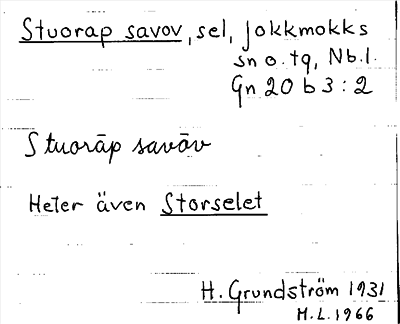 Stuorap savov, sel, Jokkmokks
sn o. tg, Nb.l.
Gn 20 b 3 : 2
Stuorāp savāv
Heter även Storselet
H. Grundström 1931
M.L. 1966